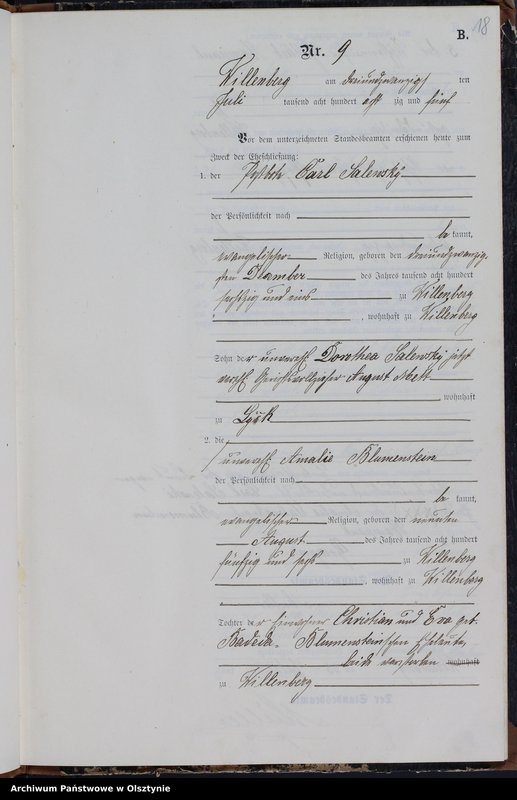 18
B.
Nr. 9
Willenberg am dreiundzwanzigsten
Juli tausend acht hundert acht zig und fünf
Vor dem unterzeichneten Standesbeamten erschienen heute zum
Zweck der Eheschließung:
1. der Postbote Carl Salewsky
der Persönlichkeit nach
be kannt,
evangelischer Religion, geboren den dreiundzwanzig-
sten Dezember des Jahres tausend acht hundert
sechszig und eins zu Willenberg
, wohnhaft zu Willenberg
Sohn der unverehl. Dorothea Salewsky jetzt
verehl. Gerichtsvollzieher August
, wohnhaft
zu Lyck
2. die
unverehl. Amalie Blumenstein
der Persönlichkeit nach
be kannt,
evangelischer Religion, geboren den neunten
August des Jahres tausend acht hundert
fünfzig und sechs zu Willenberg
, wohnhaft zu Willenberg
Tochter der Einwohner Christian und Eva geb.
Blumensteinschen Eheleute,
beide verstorben wohnhaft
zu Willenberg
Archiwum Państwowe w Olsztynie